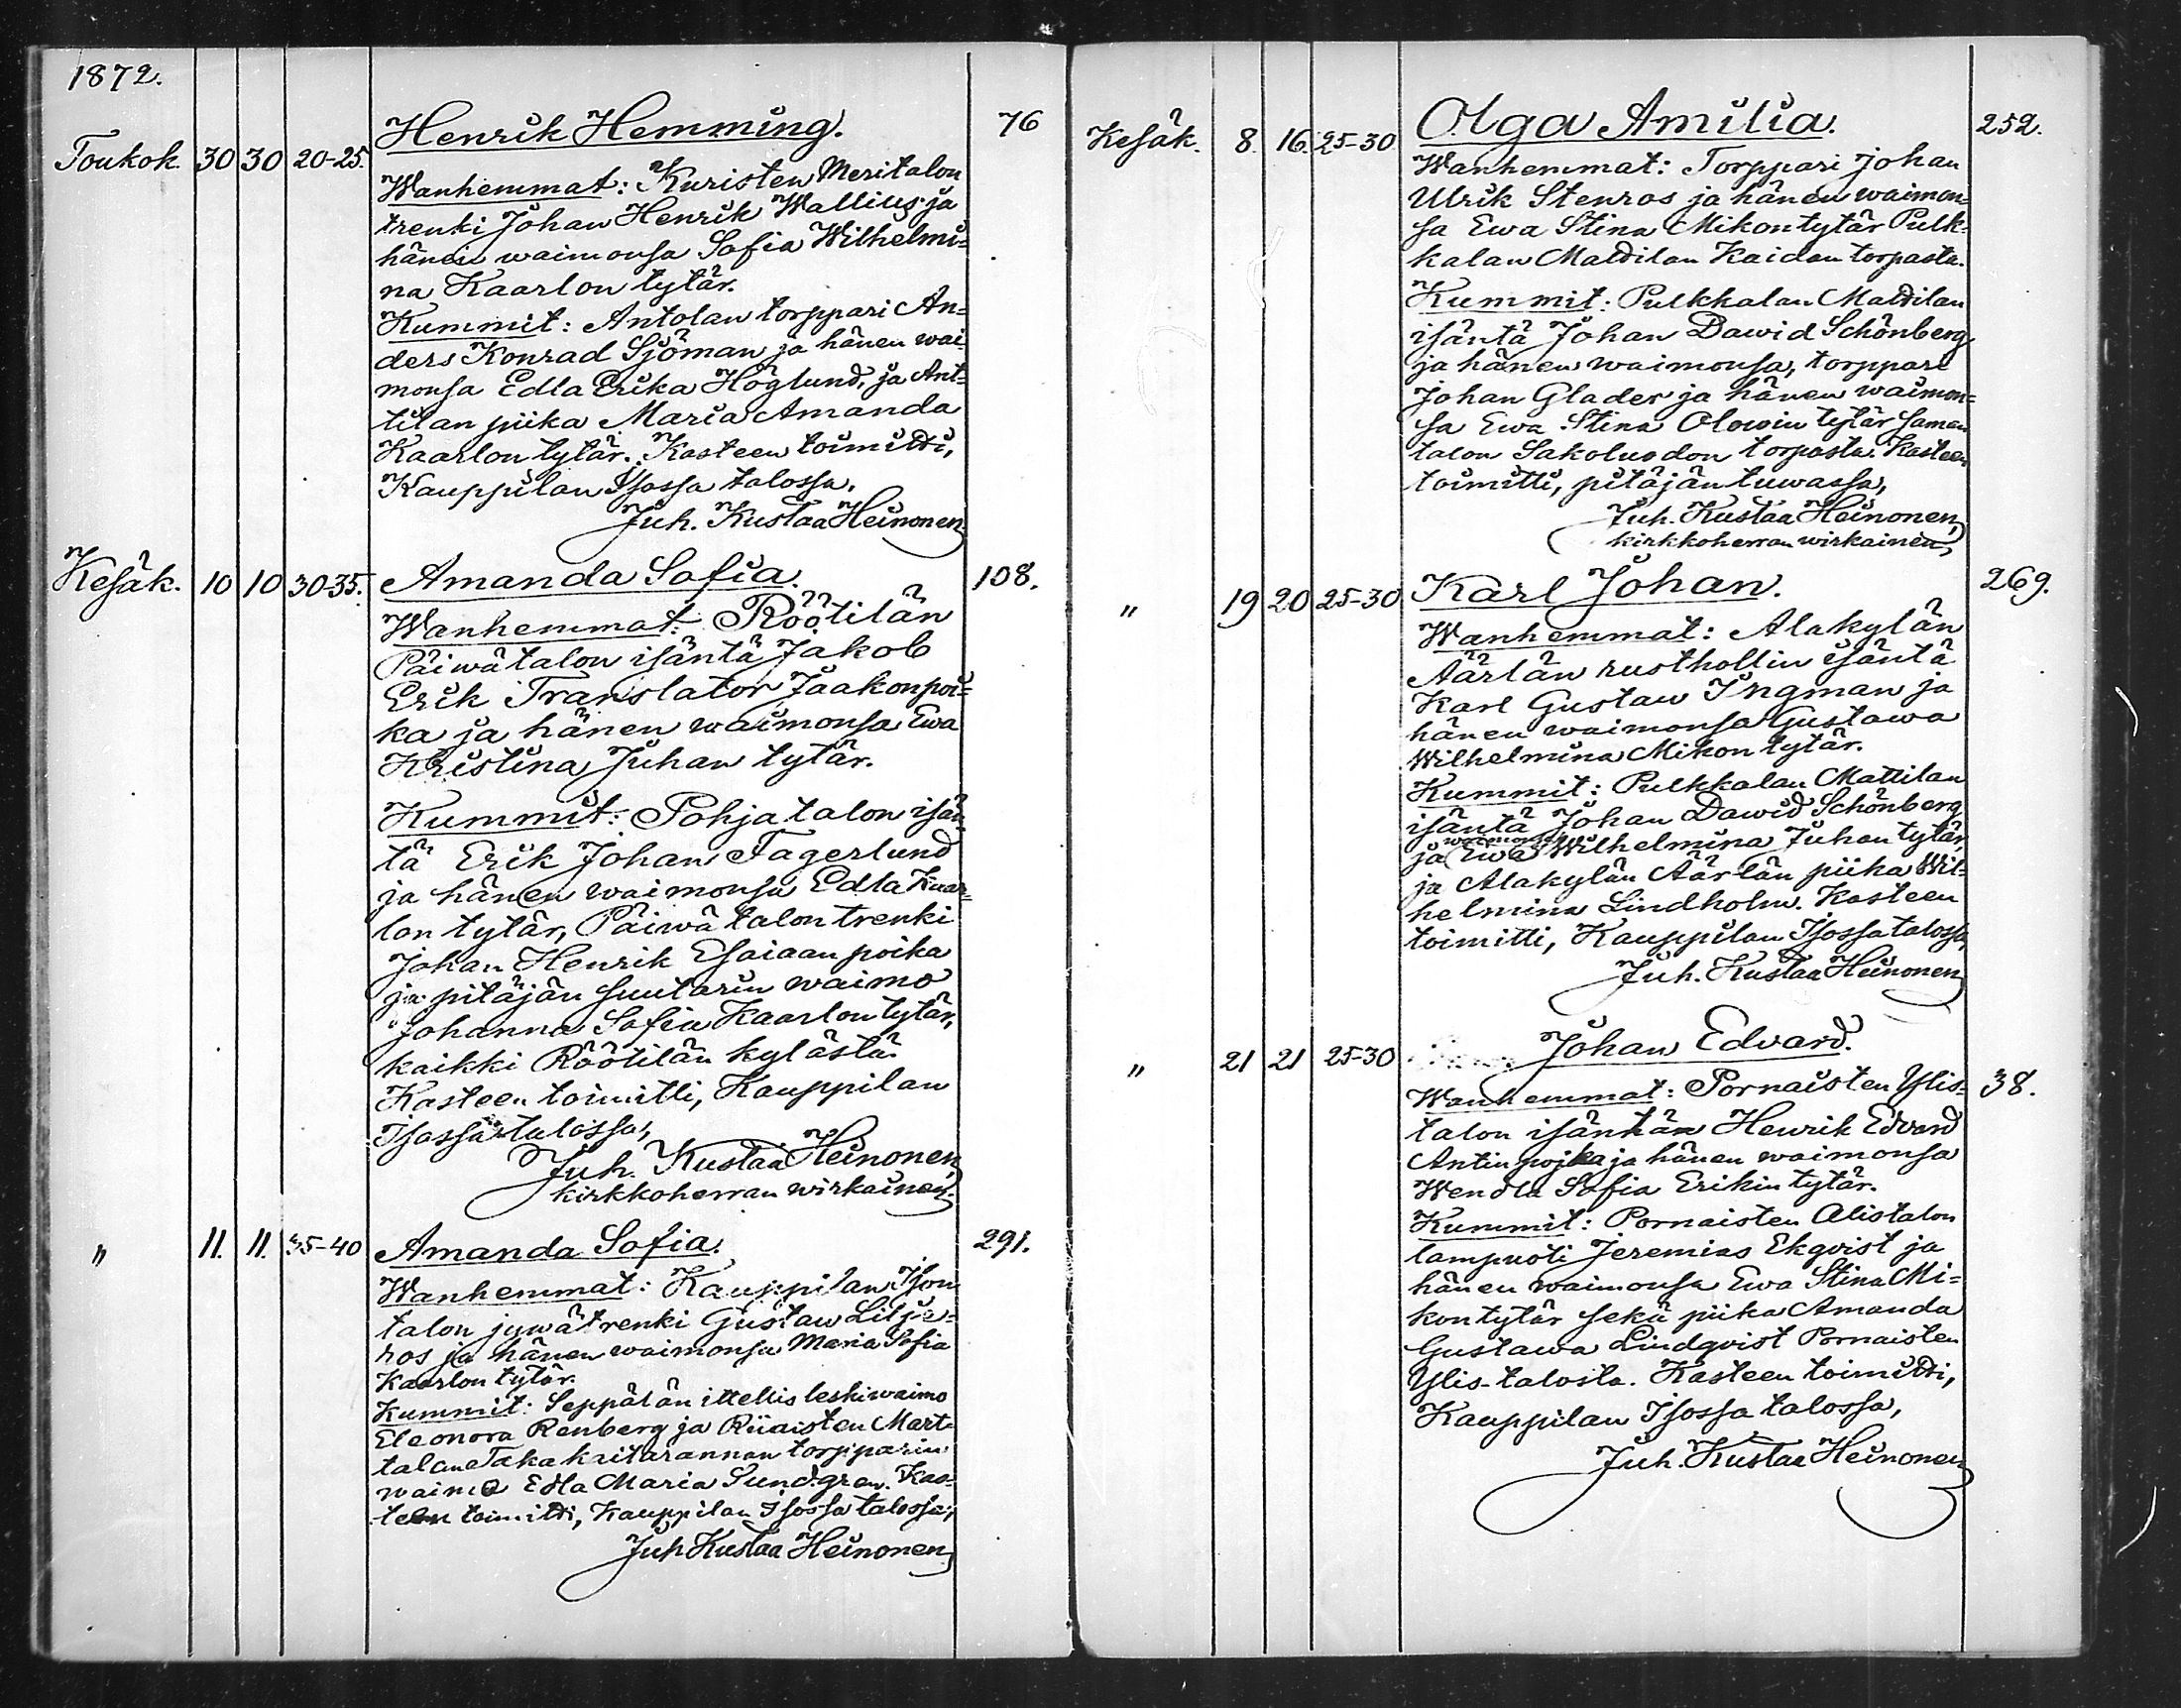 1872.
Toukok. 30 30 20-25. Henrik Hemming. 76
Wanhemmat: Kuristen Meritalon
trenki Johan Henrik Wallius ja
hänen waimonsa Sofia Wilhelmi=
na Kaarlon tytär.
Kummit: Antolan torppari An=
ders Konrad Sjöman ja hänen wai=
monsa Edla Erika Höglund, ja Ant=
tilan piika Maria Amanda
Kaarlon tytär. Kasteen toimitti,
Kauppilan Isossa talossa,
Juh. Kustaa Heinonen
Kesäk. 10 10 30-35. Amanda Sofia. 108.
Wanhemmat: Röötilän
Päiwätalon isäntä Jakob
Erik Translator Jaakonpoi=
ka ja hänen waimonsa Ewa
Kristina Juhan tytär.
Kummit: Pohjatalon isän=
tä Erik Johan Fagerlund
ja hänen waimonsa Edla Kaar=
lon tytär, Päiwätalon trenki
Johan Henrik Esaiaan poika
ja pitäjän suutarin waimo
Johanna Sofia Kaarlon tytär,
kaikki Röötilän kylästä.
Kasteen toimitti, Kauppilan
Isossa talossa,
Juh. Kustaa Heinonen,
kirkkoherran wirkainen.
" 11. 11. 35-40 Amanda Sofia. 291.
Wanhemmat: Kauppilan Ison
talon jywätrenki Gustaw Litje=
ros ja hänen waimonsa Maria Sofia
Kaarlon tytär.
Kummit: Seppälän ittellis leskiwaimo
Eleonora Renberg ja Riiaisten Mart=
talan Takakaitarannan torpparin
waimo Edla Maria Sundgren. Kas=
teen toimitti, Kauppilan Isossa talossa,
Juh Kustaa Heinonen
Kesäk. 8. 16. 25-30 Olga Amilia. 252.
Wanhemmat: Torppari Johan
Ulrik Stenros ja hänen waimon=
sa Ewa Stina Mikontytär Pulk=
kalan Mattilan Kaidan torpasta.
Kummit: Pulkkalan Mattilan
isäntä Johan Dawid Schönberg
ja hänen waimonsa, torppari
Johan Glader ja hänen waimon=
sa Ewa Stina Olowin tytär saman
talon Sakoluodon torpasta. Kasteen
toimitti, pitäjän tuwassa,
Juh. Kustaa Heinonen,
kirkkoherran wirkainen,
" 19 20 25-30 Karl Johan. 269.
Wanhemmat: Alakylän
Äärlän rusthollin isäntä
Karl Gustaw Ingman ja
hänen waimonsa Gustawa
Wilhelmina Mikon tytär.
Kummit: Pulkkalan Mattilan
isäntä Johan Dawid Schönberg
ja waimonsa Ewa Wilhelmina Juhan tytär,
ja Alakylän Äärlän piika Wil=
helmina Lindholm. Kasteen
toimitti, Kauppilan Isossa talossa,
Juh. Kustaa Heinonen
" 21 21 25-30 Johan Edvard. 38.
Wanhemmat: Pornaisten Ylis=
talon isäntä Henrik Edvard
Antin pojka ja hänen waimonsa
Wendla Sofia Erikin tytär.
Kummit: Pornaisten Alistalon
lampuoti Jeremias Ekqvist ja
hänen waimonsa Ewa Stina Mi=
kontytär sekä piika Amanda
Gustawa Lindqvist Pornaisten
Ylis-talosta. Kasteen toimitti,
Kauppilan Isossa talossa,
Juh. Kustaa Heinonen